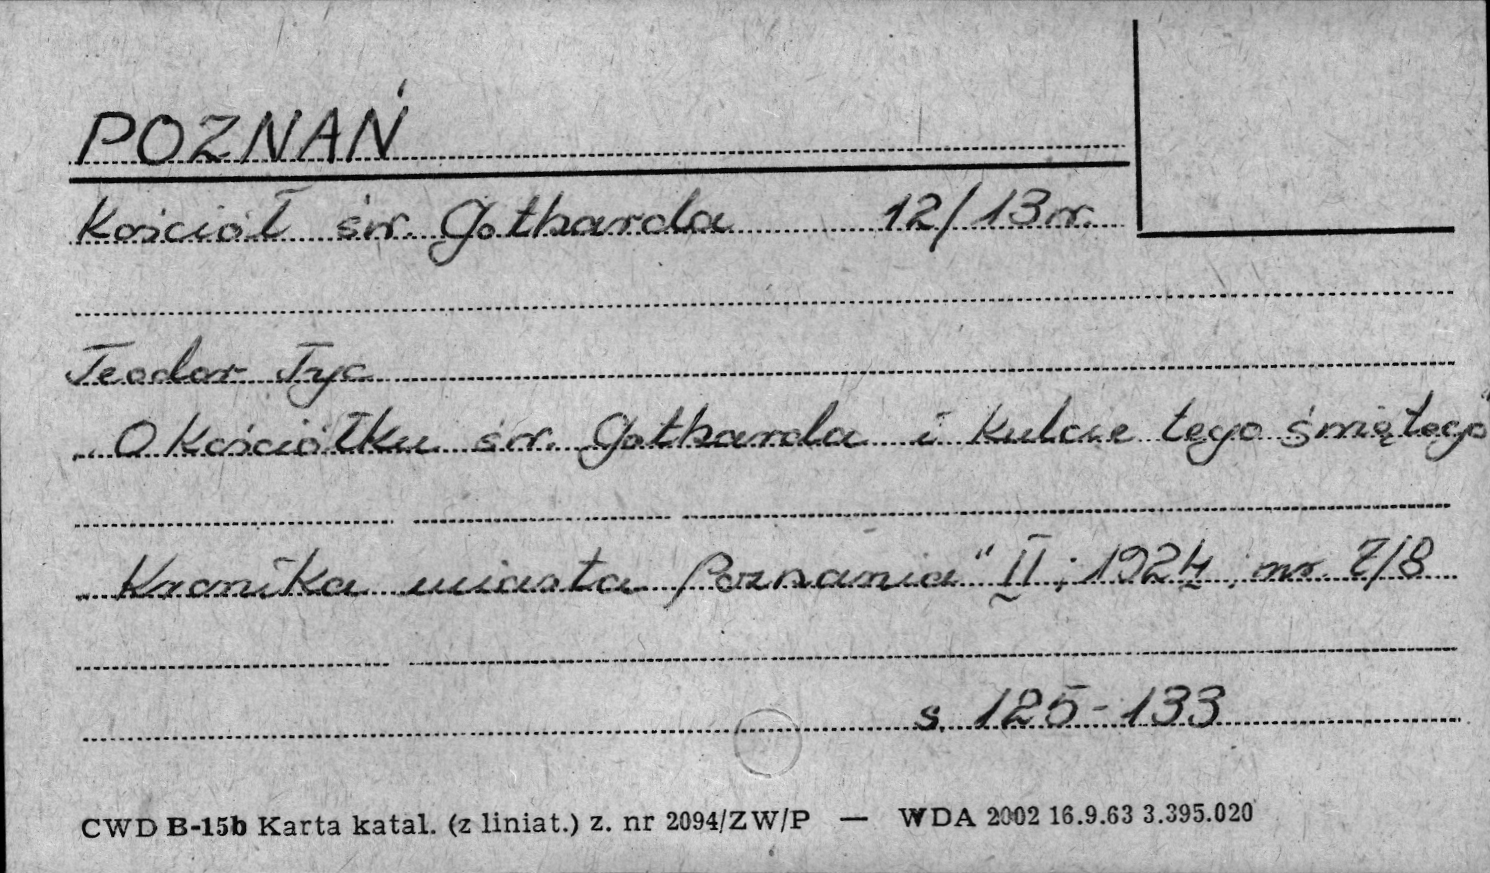 POZNAŃ
Kościół św. Gotharda 12/13 w.
Teodor Tyc
„O kościółku św. Gotharda i kulcie tego świętego"
„Kronika miasta Poznania" II; 1924; nr. 7/8
s. 125-133
CWD B-15b Karta katal. (z liniat.) z. nr 2094/ZW/P — WDA 2002 16.9.63 3.395.020